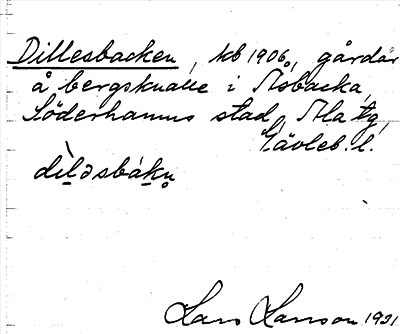 Dillesbacken, kb 1906, gårdar
å bergskulle i Åsbacka,
Söderhamns stad, Ala tg,
Gävleb. l.
dìləsbákn̥
Lars Larsson 1931